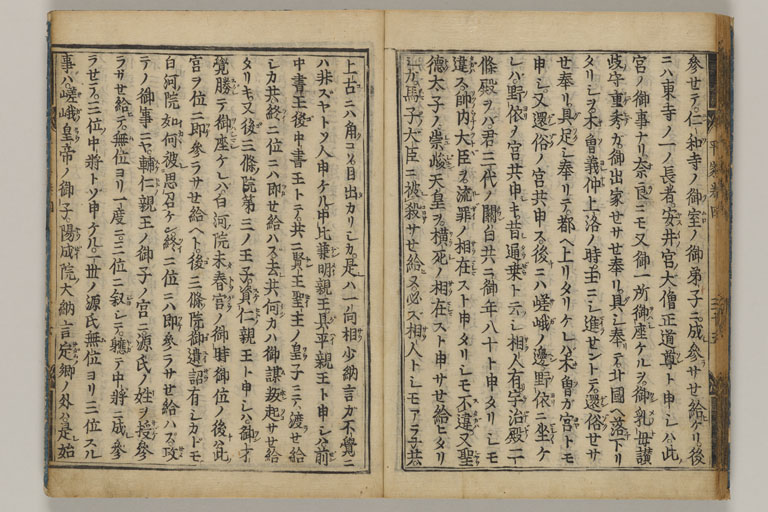 参セテ仁和寺ノ御室ノ御弟子ニ成参サセ給ケリ後
ニハ東寺ノ一ノ長者安井宮ノ大僧正道尊ト申シハ此
宮ノ御事ナリ奈良ニモ又御一所御座ケルヲ御乳母讃
岐守重秀カ御出家セサセ奉リ具シ奉テ北國ヘ落下リ
タリシヲ木曽義仲上洛ノ時主ニシ進セントテ還俗セサ
セ奉リ具足シ奉リテ都ヘ上リタリケレハ木曽カ宮トモ
申シ又還俗ノ宮共申ス後ニハ嵯峨ノ邊野依ニ坐ケ
レハ野依ノ宮共申キ昔通乗ト云シ相人有宇治殿二
條殿ヲハ君三代ノ關白共ニ御年八十ト申タリシモ
違ス帥内大臣ヲハ流罪ノ相在スト申タリシモ不違又聖
德太子ノ崇峻天皇ヲ横死ノ相在スト申サセ給ヒタリ
シカ馬子大臣ニ被殺サセ給又必ス相人トシモアラ子共
上古ニハ角コソ目出カリシカ是ハ一向相少納言カ不覺ニ
ハ非スヤトソ人申ケル中比兼明親王具平親王ト申シハ前
中書王後中書王トテ共ニ賢王聖主ノ皇子ニテ渡セ給
シカ共終ニ位ニハ即セ給ハス去共何カハ御謀叛起サセ給
タリキ又後三條院第三ノ王子資仁親王ト申シハ御才
覺勝テ御座ケレハ白河院未春宮ノ御時御位ノ後ハ此
宮ヲ位ニ即参ラサセ給ヘト後三條院御遺詔有シカドモ
白河院如何被思召ケン終ニ位ニハ即参ラサセ給ハス攻
テノ御事ニヤ輔仁親王ノ御子ノ宮ニ源氏ノ姓ヲ授参
ラサセ給テ無位ヨリ一度ニ三位ニ叙シテ軈テ中將ニ成参
ラセテ三位中將トソ申ケル一世ノ源氏無位ヨリ三位スル
事ハ嵯峨皇帝ノ御子陽成院大納言定卿ノ外ハ是始